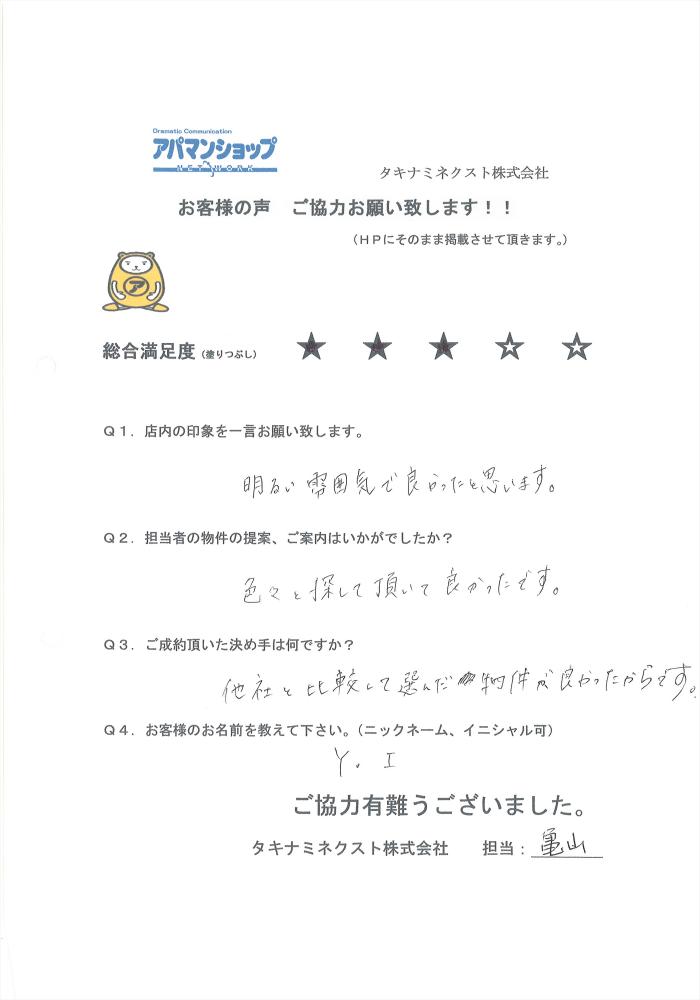 Dramatic Communication
アパマンショップ
NETWORK
タキナミネクスト株式会社
お客様の声 ご協力お願い致します!!
(HPにそのまま掲載させて頂きます。)
ア
総合満足度(塗りつぶし) ★ ★ ★ ☆ ☆
Q1. 店内の印象を一言お願い致します。
明るい雰囲気で良かったと思います。
Q2. 担当者の物件の提案、ご案内はいかがでしたか?
色々と探して頂いて良かったです。
Q3. ご成約頂いた決め手は何ですか?
他社と比較して選んだ物件が良かったからです。
Q4. お客様のお名前を教えて下さい。(ニックネーム、イニシャル可)
Y. I
ご協力有難うございました。
タキナミネクスト株式会社 担当:亀山